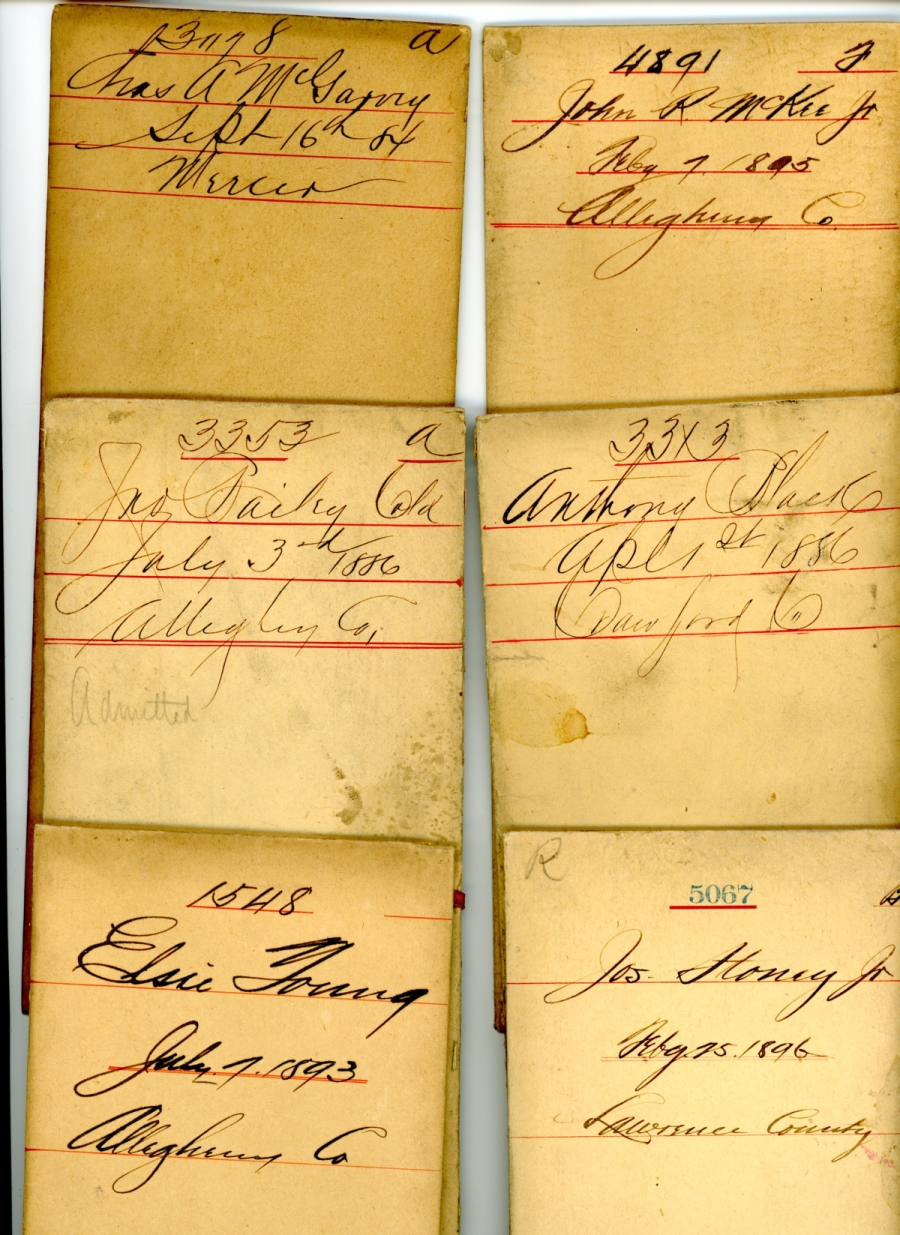 a
Chas A McGarvey
Sept 16th 84
Mercer
4891 F
John R. McKee Jr
Feby 7. 1895
Allegheny Co.
3353 a
Jno Bailey Cold
July 3rd 1886
Allegheny Co,
Admitted
33X3
Anthony Black
Apl 1st 1886
Crawford Co
1548
Elsie Young
July. 7. 1893
Allegheny Co
R
5067
Jos. Stoney Jr
Feby. 25. 1896
Lawrence County